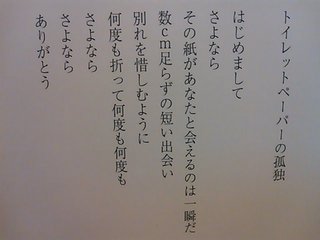 トイレットペーパーの孤独
はじめまして
さよなら
その紙があなたと会えるのは一瞬だ
数cm足らずの短い出会い
別れを惜しむように
何度も折って何度も何度も
さよなら
さよなら
ありがとう